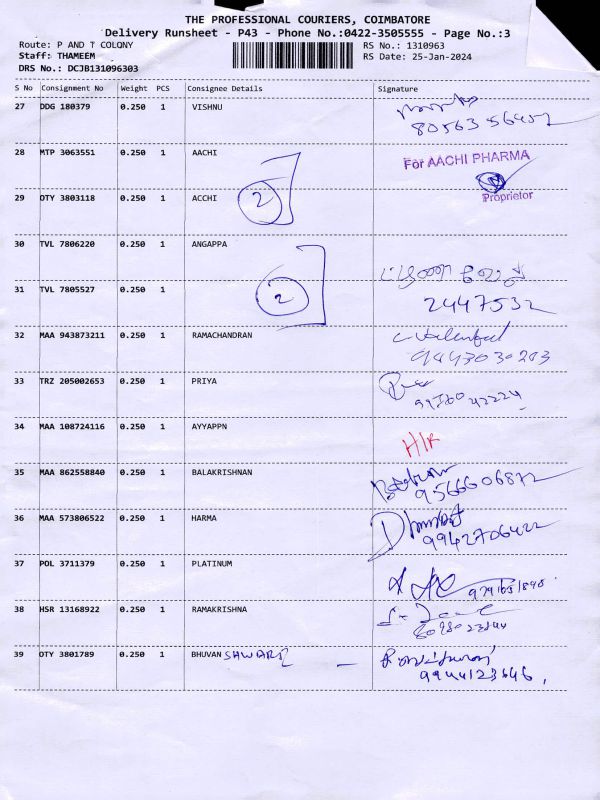 THE PROFESSIONAL COURIERS, COIMBATORE
Delivery Runsheet - P43 - Phone No.:0422-3505555 - Page No.:3
Route: P AND T COLONY RS No.: 1310963
Staff: THAMEEM RS Date: 25-Jan-2024
DRS No.: DCJB131096303
S No Consignment No Weight PCS Consignee Details Signature
27 DDG 180379 0.250 1 VISHNU
28 MTP 3063551 0.250 1 AACHI
For AACHI PHARMA
2
29 OTY 3803118 0.250 1 ACCHI
Proprietor
30 TVL 7806220 0.250 1 ANGAPPA
31 TVL 7805527 0.250 1
2
2447532
32 MAA 943873211 0.250 1 RAMACHANDRAN
9443030203
33 TRZ 205002653 0.250 1 PRIYA
34 MAA 108724116 0.250 1 AYYAPPN
H/R
35 MAA 862558840 0.250 1 BALAKRISHNAN
9566606872
36 MAA 573806522 0.250 1 HARMA
9942706422
37 POL 3711379 0.250 1 PLATINUM
38 HSR 13168922 0.250 1 RAMAKRISHNA
39 OTY 3801789 0.250 1 BHUVAN SAWARI
9944123646